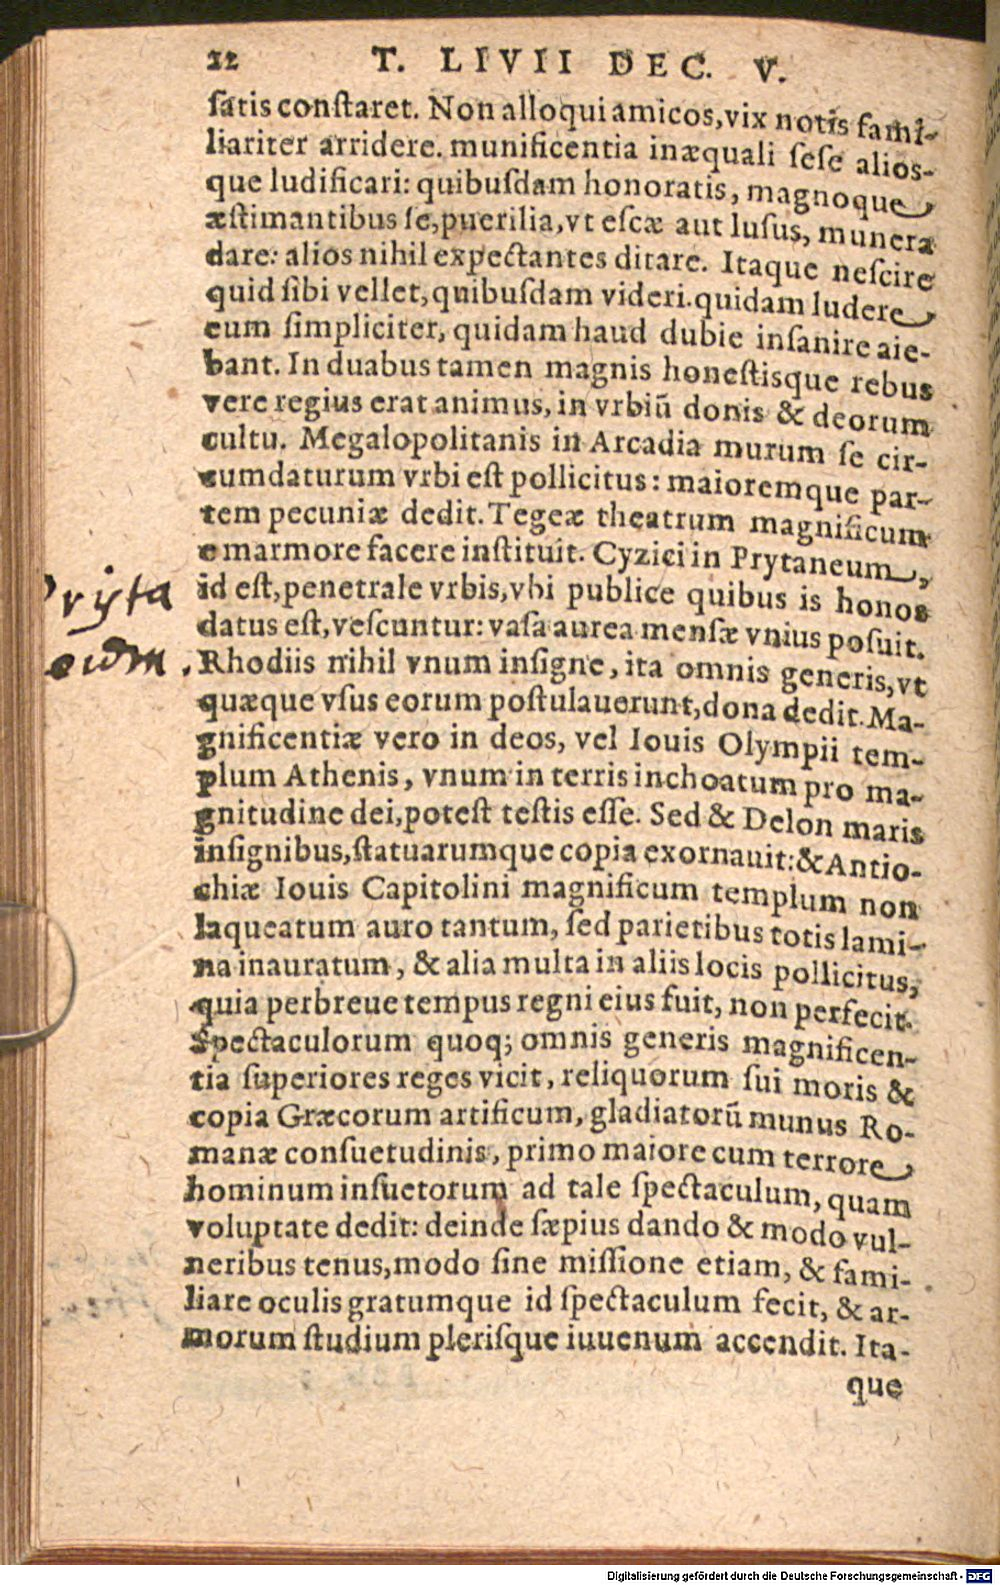 22 T. LIVII DEC. V.
satis constaret. Non alloqui amicos, vix notis fami-
liariter arridere. munificentia inæquali sese alios-
que ludificari: quibusdam honoratis, magnoque
æstimantibus se, puerilia, vt escæ aut lusus, munera
dare: alios nihil expectantes ditare. Itaque nescire
quid sibi vellet, quibusdam videri. quidam ludere
eum simpliciter, quidam haud dubie insanire aie-
bant. In duabus tamen magnis honestisque rebus
vere regius erat animus, in vrbiũ donis & deorum
cultu. Megalopolitanis in Arcadia murum se cir-
cumdaturum vrbi est pollicitus: maioremque par-
tem pecuniæ dedit. Tegeæ theatrum magnificum
e marmore facere instituit. Cyzici in Prytaneum,
id est, penetrale vrbis, vbi publice quibus is honos
datus est, vescuntur: vasa aurea mensæ vnius posuit.
Rhodiis nihil vnum insigne, ita omnis generis, vt
quæque vsus eorum postulauerunt, dona dedit. Ma-
gnificentiæ vero in deos, vel Iouis Olympii tem-
plum Athenis, vnum in terris inchoatum pro ma-
gnitudine dei, potest testis esse. Sed & Delon maris
insignibus, statuarumque copia exornauit: & Antio-
chiæ Iouis Capitolini magnificum templum non
laqueatum auro tantum, sed parietibus totis lami-
na inauratum, & alia multa in aliis locis pollicitus,
quia perbreue tempus regni eius fuit, non perfecit.
Spectaculorum quoq; omnis generis magnificen-
tia superiores reges vicit, reliquorum sui moris &
copia Græcorum artificum, gladiatorũ munus Ro-
manæ consuetudinis, primo maiore cum terrore
hominum insuetorum ad tale spectaculum, quam
voluptate dedit: deinde sæpius dando & modo vul-
neribus tenus, modo sine missione etiam, & fami-
liare oculis gratumque id spectaculum fecit, & ar-
morum studium plerisque iuuenum accendit. Ita-
que
Pryta
Digitalisierung gefördert durch die Deutsche Forschungsgemeinschaft - DFG